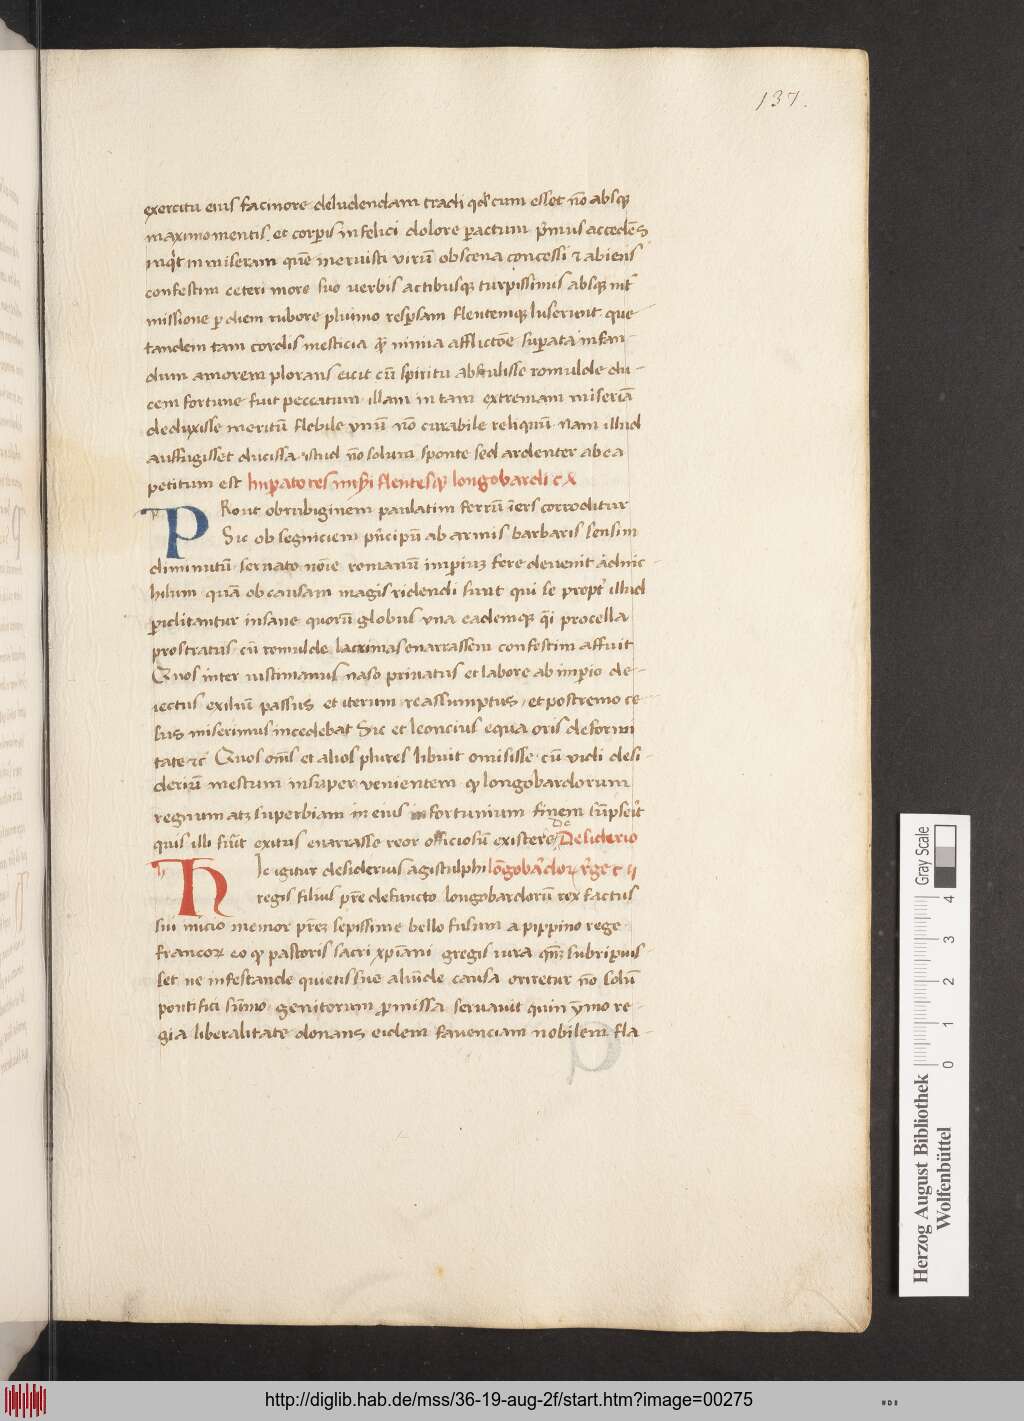 137.
exercitu eius facinore deludendam tradi qđ cum esset nō absqꝫ
maximo mentis et corpis infelici dolore pactum pimus accedēs
inqͥt in miseram quē meruisti virū obscena concessi ⁊ abiens
confestim ceteri more suo verbis actibusqꝫ turpissimis absqꝫ int
missione p diem rubore plurimo respsam flentemqꝫ luserunt que
tandem tam cordis mesticia qͣꝫ nimia afflictōe supata infan-
dum amorem plorans eicit cū spiritu abstulisse romulde du-
cem fortune fuit peccatum illam in tam extremam miseriā
deduxisse meritū flebile vnū nō curabile reliquū nam illud
auffugisset ducissa istud nō solum sponte sed ardenter ab ea
petitum est Impatores mis̄i flentesqꝫ longobardi c X
PRout ob rubiginem paulatim ferrū iers corroditur
Sic ob segniciem pncipū ab armis barbaris sensim
diminutū seruato nōie romanū imperiuꝫ fere deuenit ad nic-
hilum quā ob causam magis ridendi sunt qui se propt illud
piclitantur insane quorū globus vna eademqꝫ qͣi procella
prostratus cū romulde lacrimas enarrassem confestim affuit
Quos inter iustinianus naso priuatus et labore ab impio de-
iectus exiliū passus et iterum reassumptus et postremo ce
sus miserimus incedebat Sic et leoncius equa oris deformi
tate ⁊c Quos om̄s et alios plures libuit omisisse cū vidi desi-
deriū mestum insuper venientem qꝫ longobardorum
regnum atꝫ superbiam in eius infortunium finem sūpserit
quis illi fuit exitus enarrasse reor officiosū existere De Desiderio
HIc igitur desiderius agistulphi lōgobardoꝝ rge c ii
regis filius pre defuncto longobardorū rex factus
sui inicio memor preꝫ sepissime bello fusum a pippino rege
francoꝝ eo qꝫ pastoris sacri xpiani gregis iura qnꝫ subripuis
set ne infestande quietis sue aliūde causa oriretur nō solū
pontifici sūmo genitorum pmissa seruauit quin ymo re-
gia liberalitate donans eidem fauenciam nobilem fla-
Gray Scale
0 1 2 3 4
Herzog August Bibliothek
Wolfenbüttel
http://diglib.hab.de/mss/36-19-aug-2f/start.htm?image=00275